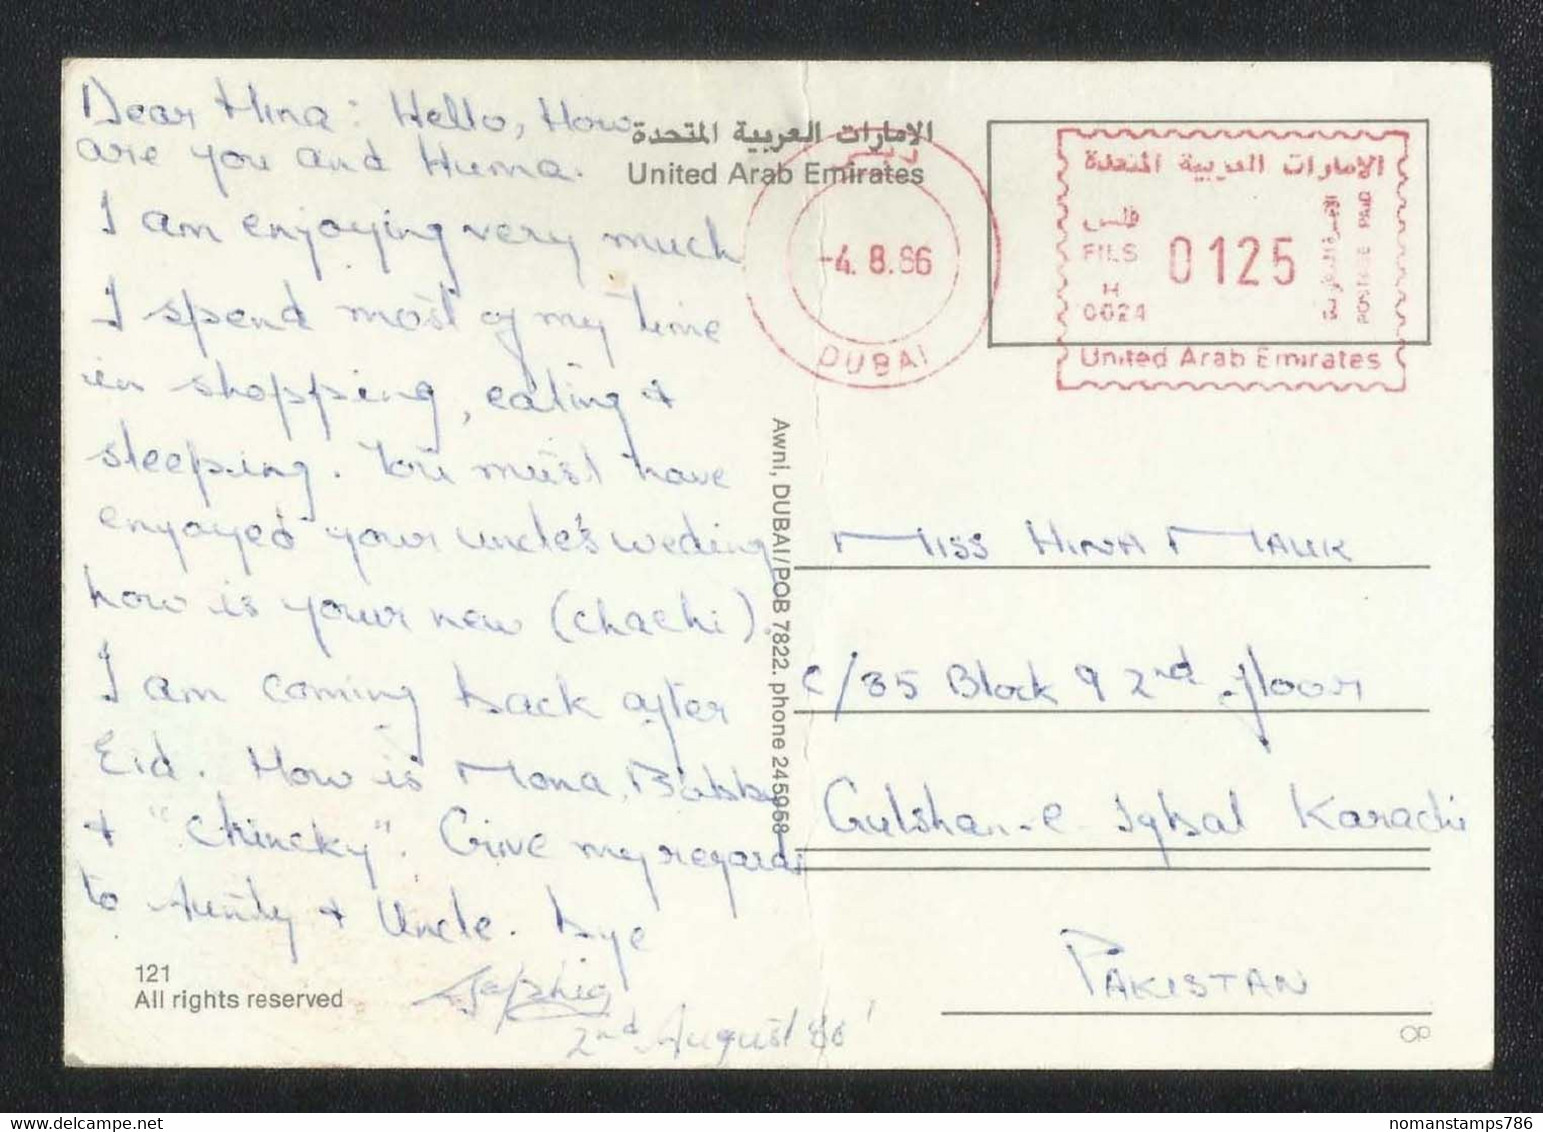 Dear Hina: Hello, How
are you and Huma.
I am enjoying very much
I spend most of my time
in shopping, eating &
sleeping. You must have
enjoyed your uncle's weding
how is your new (chachi)
I am coming back after
Eid. How is Mona, Bobby
& "Chincky". Give my regards
to Aunty & Uncle. Bye
2nd August 86'
121
All rights reserved
الامارات العربية المتحدة
United Arab Emirates
دبي
-4.8.86
DUBAI
الامارات العربية المتحدة
فلس
FILS
0125
H
0024
POSTAGE PAID
United Arab Emirates
Awni, DUBAI/POB 7822. phone 245968
MISS HINA MALIK
C/35 Block 9 2nd floor
Gulshan-e-Iqbal Karachi
PAKISTAN
nomanstamps786